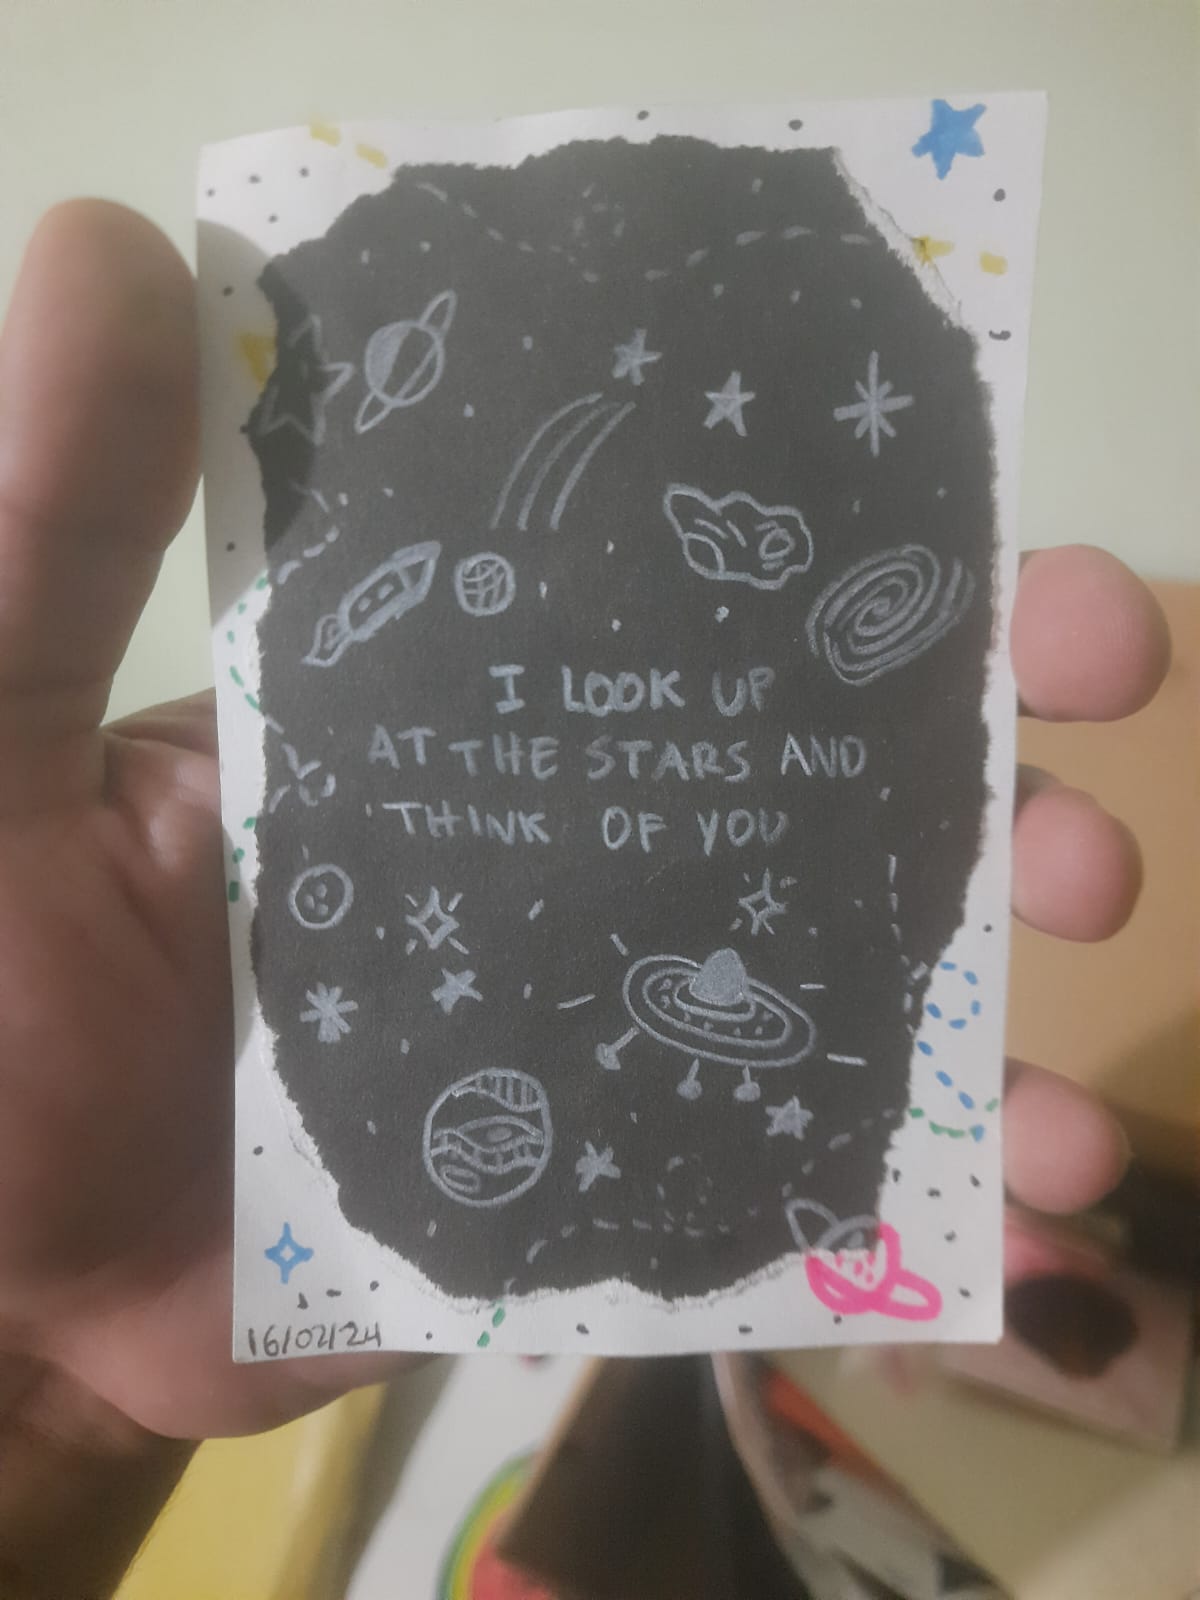 I LOOK UP
AT THE STARS AND
THINK OF YOU
16/02/24